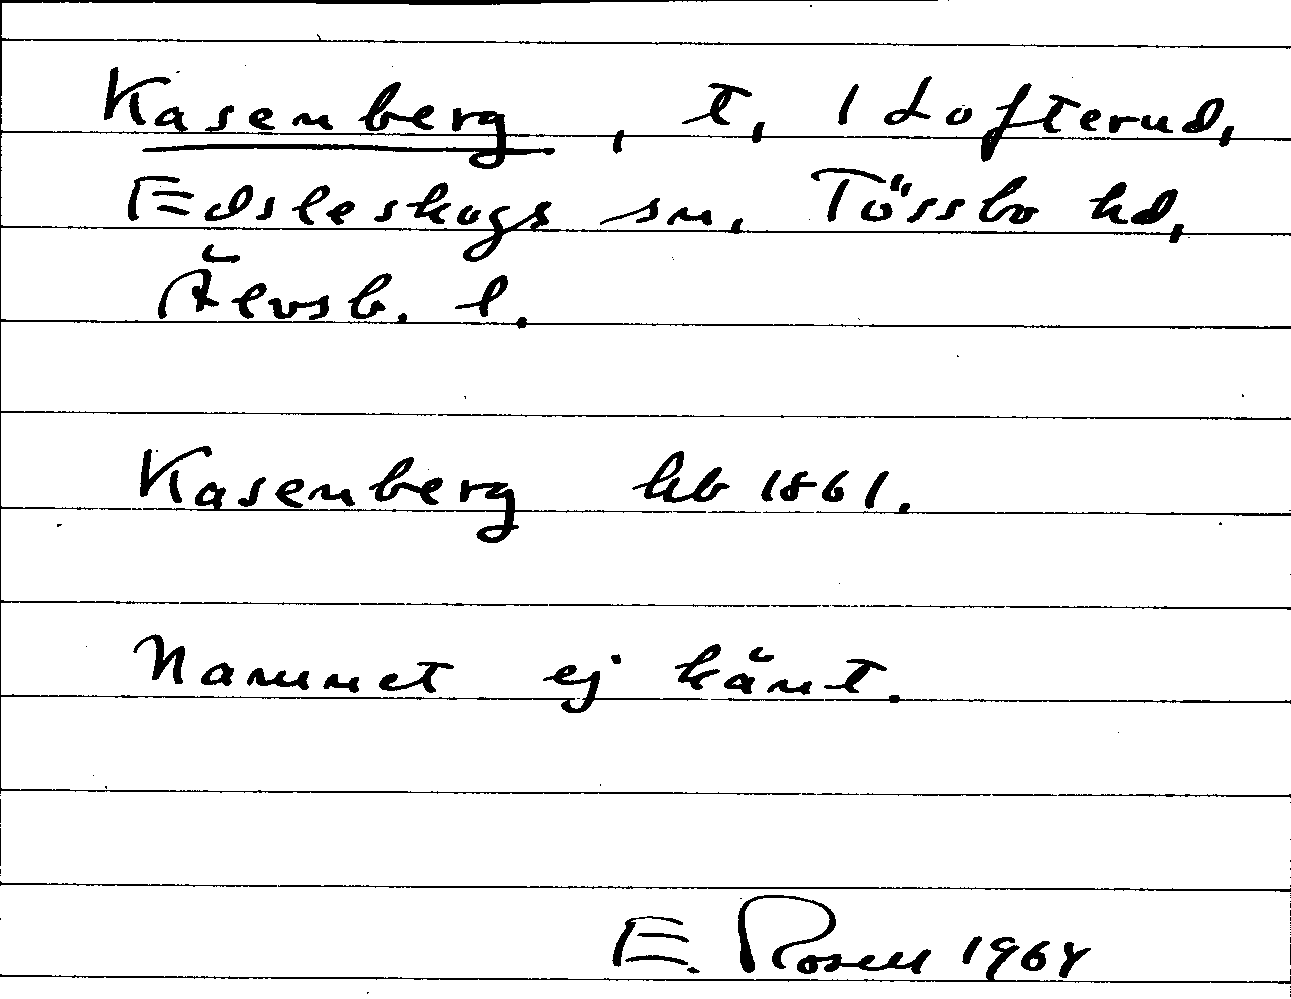 Kasenberg, t, 1 Lofterud,
Edsleskogs sn, Tössbo hd,
Älvsb. l.
Kasenberg hb 1861.
Namnet ej känt.
E. Rosell 1964